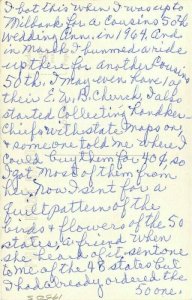 I got this when I was up to
Milbank for a Cousins 50th
Wedding Ann. in 1964. And
in March I bummed a ride
up there for another Cousins
50th. I may even have 1 of
their E.W.B. Church, I also
started Collecting Handker
Chiefs with state Maps on,
& someone told me where I
could buy them for 40¢ so
I got Most of them from
her, now I sent for a
quilt pattern of the
birds & flowers of the 50
states, a friend when
she heard of it, sent one
to me of the 48 states but
I had already ordered the
50 one.